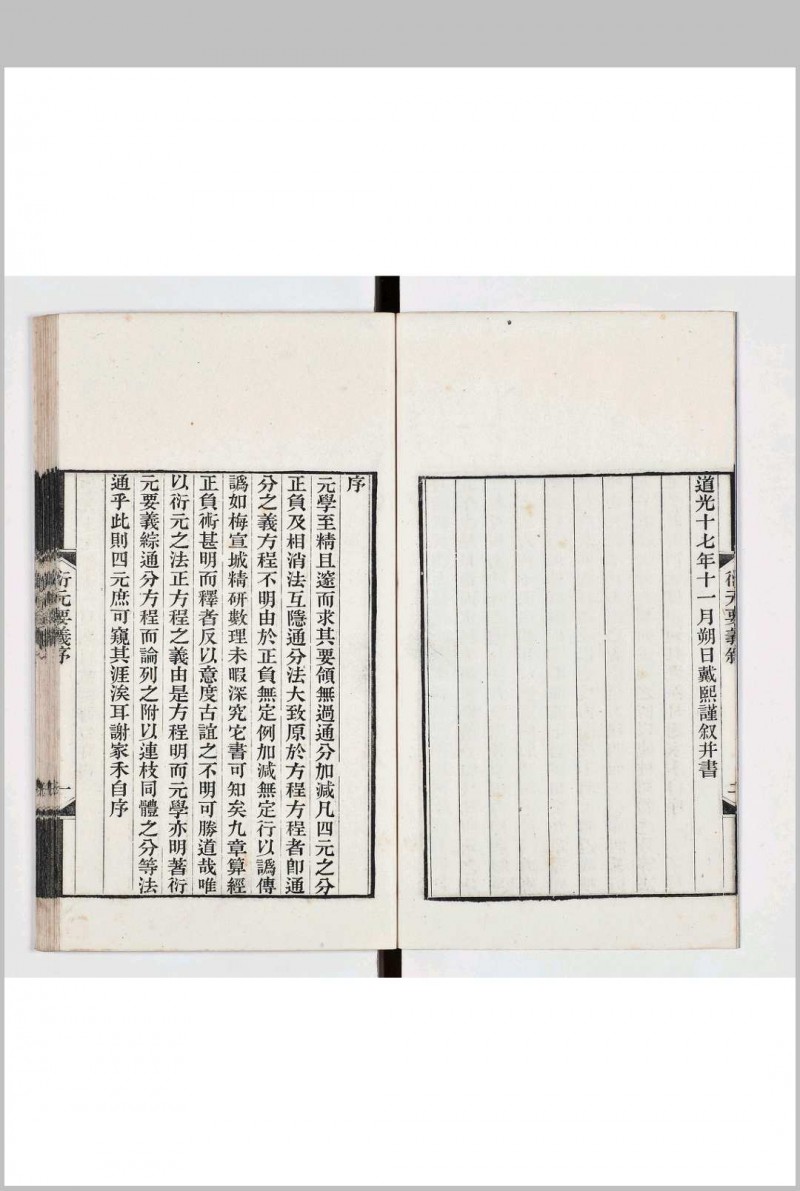 道光十七年十一月朔日戴熙謹叙并書
衍元要義叙
二
序
元學至精且邃而求其要領無過通分加減凡四元之分
正負及相消法互隱通分法大致原於方程方程者即通
分之義方程不明由於正負無定例加減無定行以譌傳
譌如梅宣城精研數理未暇深究它書可知矣九章算經
正負術甚明而釋者反以意度古誼之不明可勝道哉唯
以衍元之法正方程之義由是方程明而元學亦明著衍
元要義綜通分方程而論列之附以連枝同體之分等法
通乎此則四元庶可窺其涯涘耳謝家禾自序
衍元要義序
一